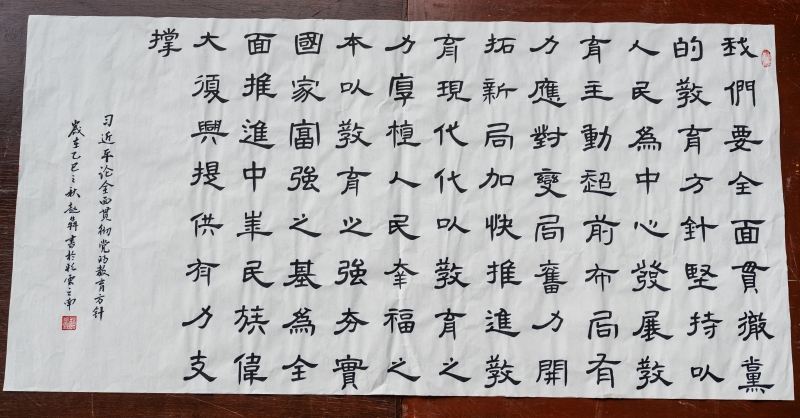 我們要全面貫徹黨
的教育方針堅持以
人民為中心發展教
育主動超前布局有
力應對變局奮力開
拓新局加快推進教
育現代代以教育之
力厚植人民幸福之
本以教育之強夯實
國家富強之基為全
面推進中華民族偉
大復興提供有力支
撐
习近平论全面贯彻党的教育方针
歲在乙巳之秋赵犇書於彩雲之南